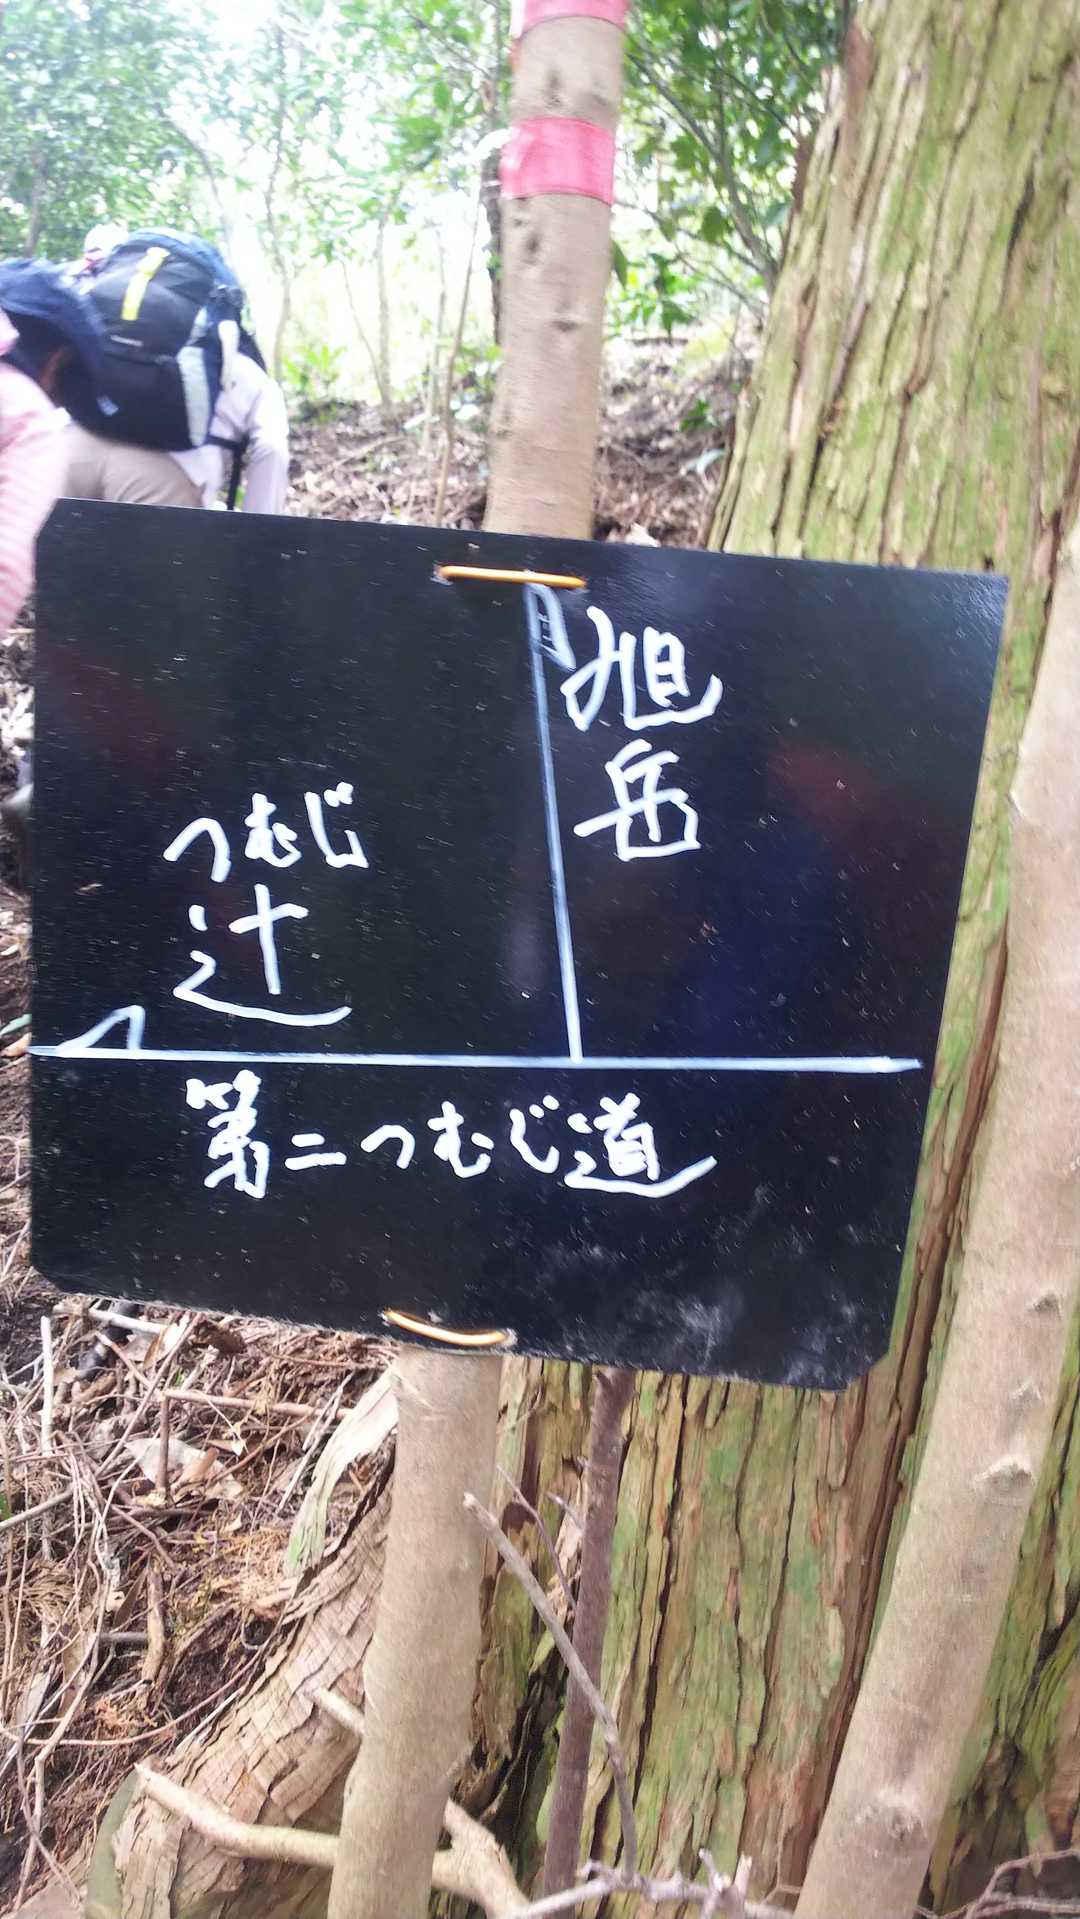 旭岳
つむじ
辻
第二つむじ道